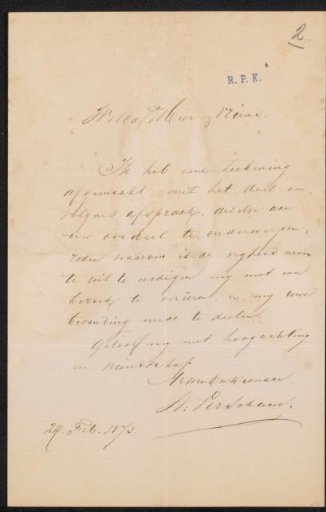 2
R.P.K.
WelEd. Heer,
Ik heb eene teekening
afgemaakt, met het doel om,
volgens afspraak, dezelve aan
uw oordeel te onderwerpen,
reden waarom ik de vrijheid neem
te uit te noodigen mij met een
bezoek te vereeren, en mij uwe
bevinding mede te deelen.
Geloof mij met hoogachting
en vriendschap
24 Feb. 1873.